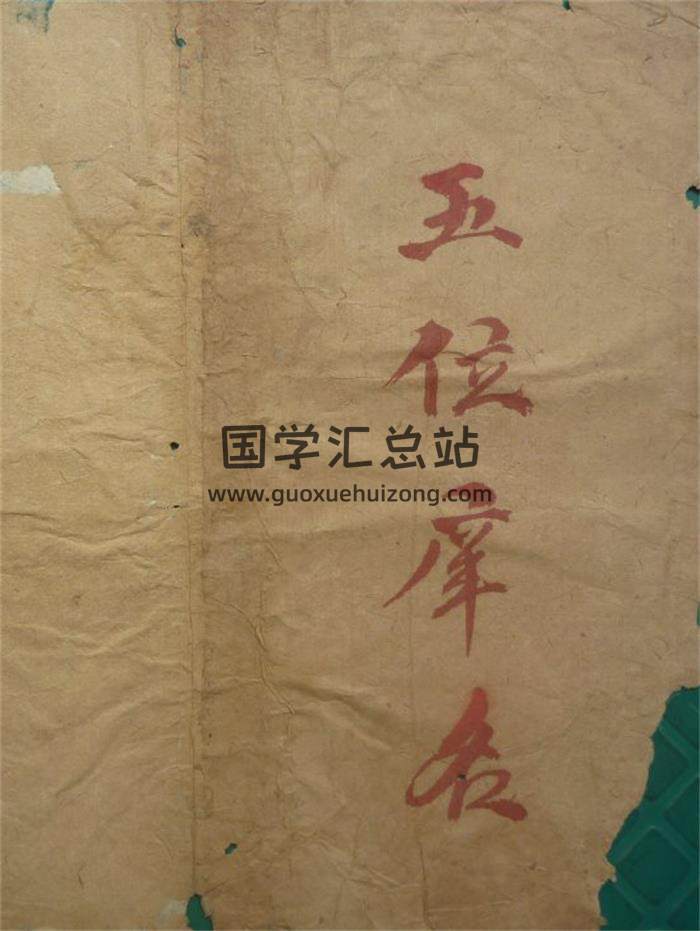 五位庠名
国学汇总站
www.guoxuehuizong.com